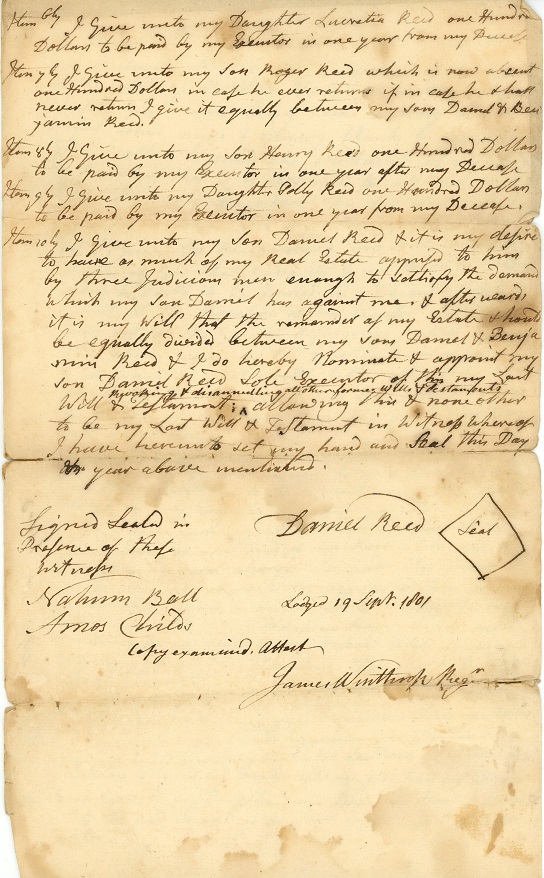 Item 6ly I Give unto my Daughter Lucretia Reed one Hundre
Dollars to be paid by my Executor in one year from my Decease
Item 7ly I Give unto my Son Roger Reed which is now absent
one Hundred Dollars in case he ever returns if in case he shall
never return I give it equally between my Sons Daniel & Ben
jamin Reed.
Item 8ly I Give unto my Son Henry Reed one Hundred Dollars
to be paid by my Executor in one year after my Decease
Item 9ly I Give unto my Daughter Polly Reed one Hundred Dollars
to be paid by my Executor in one year from my Decease.
Item 10ly I Give unto my Son Daniel Reed & it is my desire
to have as much of my Real Estate apprised to him
by three Judicious men enough to sattisfy the demand
which my Son Daniel has against me, & after wards
it is my Will that the remainder of my Estate should
be equally divided between my Sons Daniel & Benja
min Reed & I do hereby Nominate & appoint my
Son Daniel Reed Sole Executor of this my Last
revoking & disannulling all other former wills & testaments
Will & Testament; allowing this & none other
to be my Last Will & Testament in Witness whereof
I have hereunto set my hand and Seal this Day
& year above mentioned.
Signed Sealed in
Presence of these
Witness
Daniel Reed
Seal
Nahum Ball
Amos Childs
Lodged 19 Sept. 1801
Copy examined. Attest
James Winthrop Regr